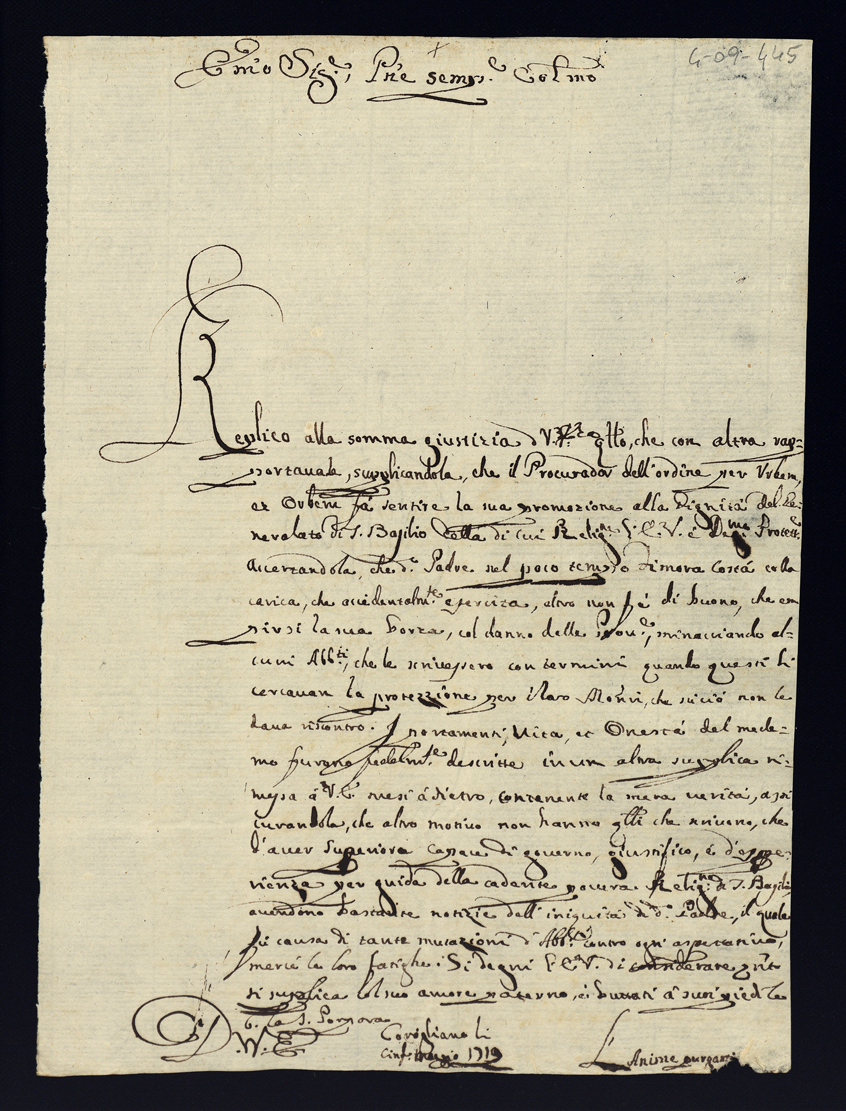 4-09-445
Emo Sigr, Pne semp.e Colmo
Replico alla somma giustizia d V. che con altra rap=
portavale, supplicandola, che il Procurador dell'ordine per Urbem,
et Orbem fá sentire la sua promozione alla Dignitá del Ge=
neralato di S. Basilio della di cui Relign S.E.V. é Protett.
Accertandola, che d.o Padre nel poco tempo dimora costá colla
carica, che accidentalmte esercita, altro non fé di buono, che em
pirsi la sua borza, col danno delle minacciando al=
cuni Abbti, che le scrivessero con termini quando questi li
cercavan la protezzione per i loro Monri, che sució non le
dava riscontro. I portamenti, Vita, et Onestá del mede=
mo furono fedelmte descritte in un altra supplica ri=
mesa á V.E. mesi á dietro, contenente la mera veritá, assi
curandola, che altro motivo non hanno qlli che scrivono, che
d'aver Superiora capace di governo, giustifico, é d'espe=
rienza per guida della cadente povera Relign.e di S. Basilio
avendono bastante notizie dell'iniquitá di d.o Padre, il quale
fú causa di tante mutazioni d'Abbti contro ogni aspettativa,
mercé le loro fatighe. Si degni S.E.V. di considerare
ti supplica col suo amore paterno, é buttati á suoi piedi le
b. la S. Porpora
D. V. E.
Corigliano li
Cinq: 1719
L'Anime purganti